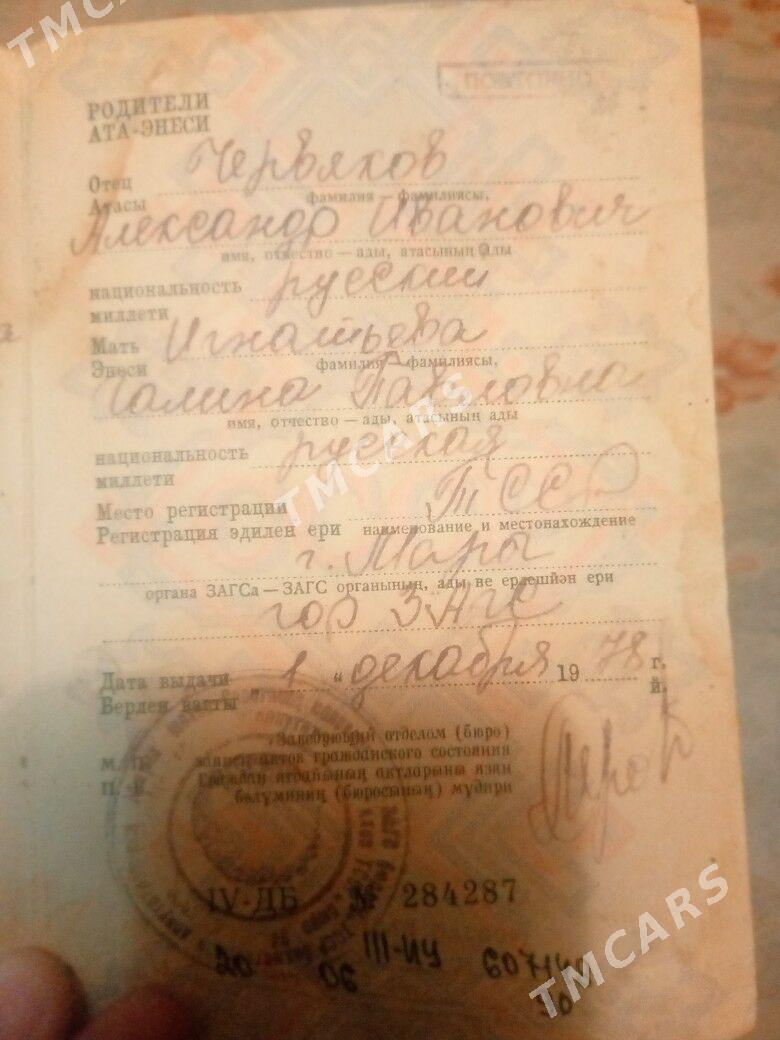 TMCARS
ПОВТОРНОЕ
РОДИТЕЛИ
АТА-ЭНЕСИ
Отец Червяков
Атасы фамилия — фамилиясы,
Александр Иванович
имя, отчество — ады, атасының ады
национальность русский
миллети
Мать Игнатьева
Энеси фамилия — фамилиясы,
Галина Павловна
имя, отчество — ады, атасының ады
TMCARS
национальность русская
миллети
Место регистрации ТССР
Регистрация эдилен ери наименование и местонахождение
г. Мары
органа ЗАГСа — ЗАГС органының, ады ве ерлешйән ери
гор ЗАГС
Дата выдачи 1 " декабря 1978 г.
Берлен вагты й.
Заведующий отделом (бюро)
М. П. записи актов гражданского состояния
П. Е. Граждан ягдайының актларыны язян
бөлүминиң (бюросының) мүдири
IV-ДБ № 284287
TMCARS
20 06 III-ИЧ